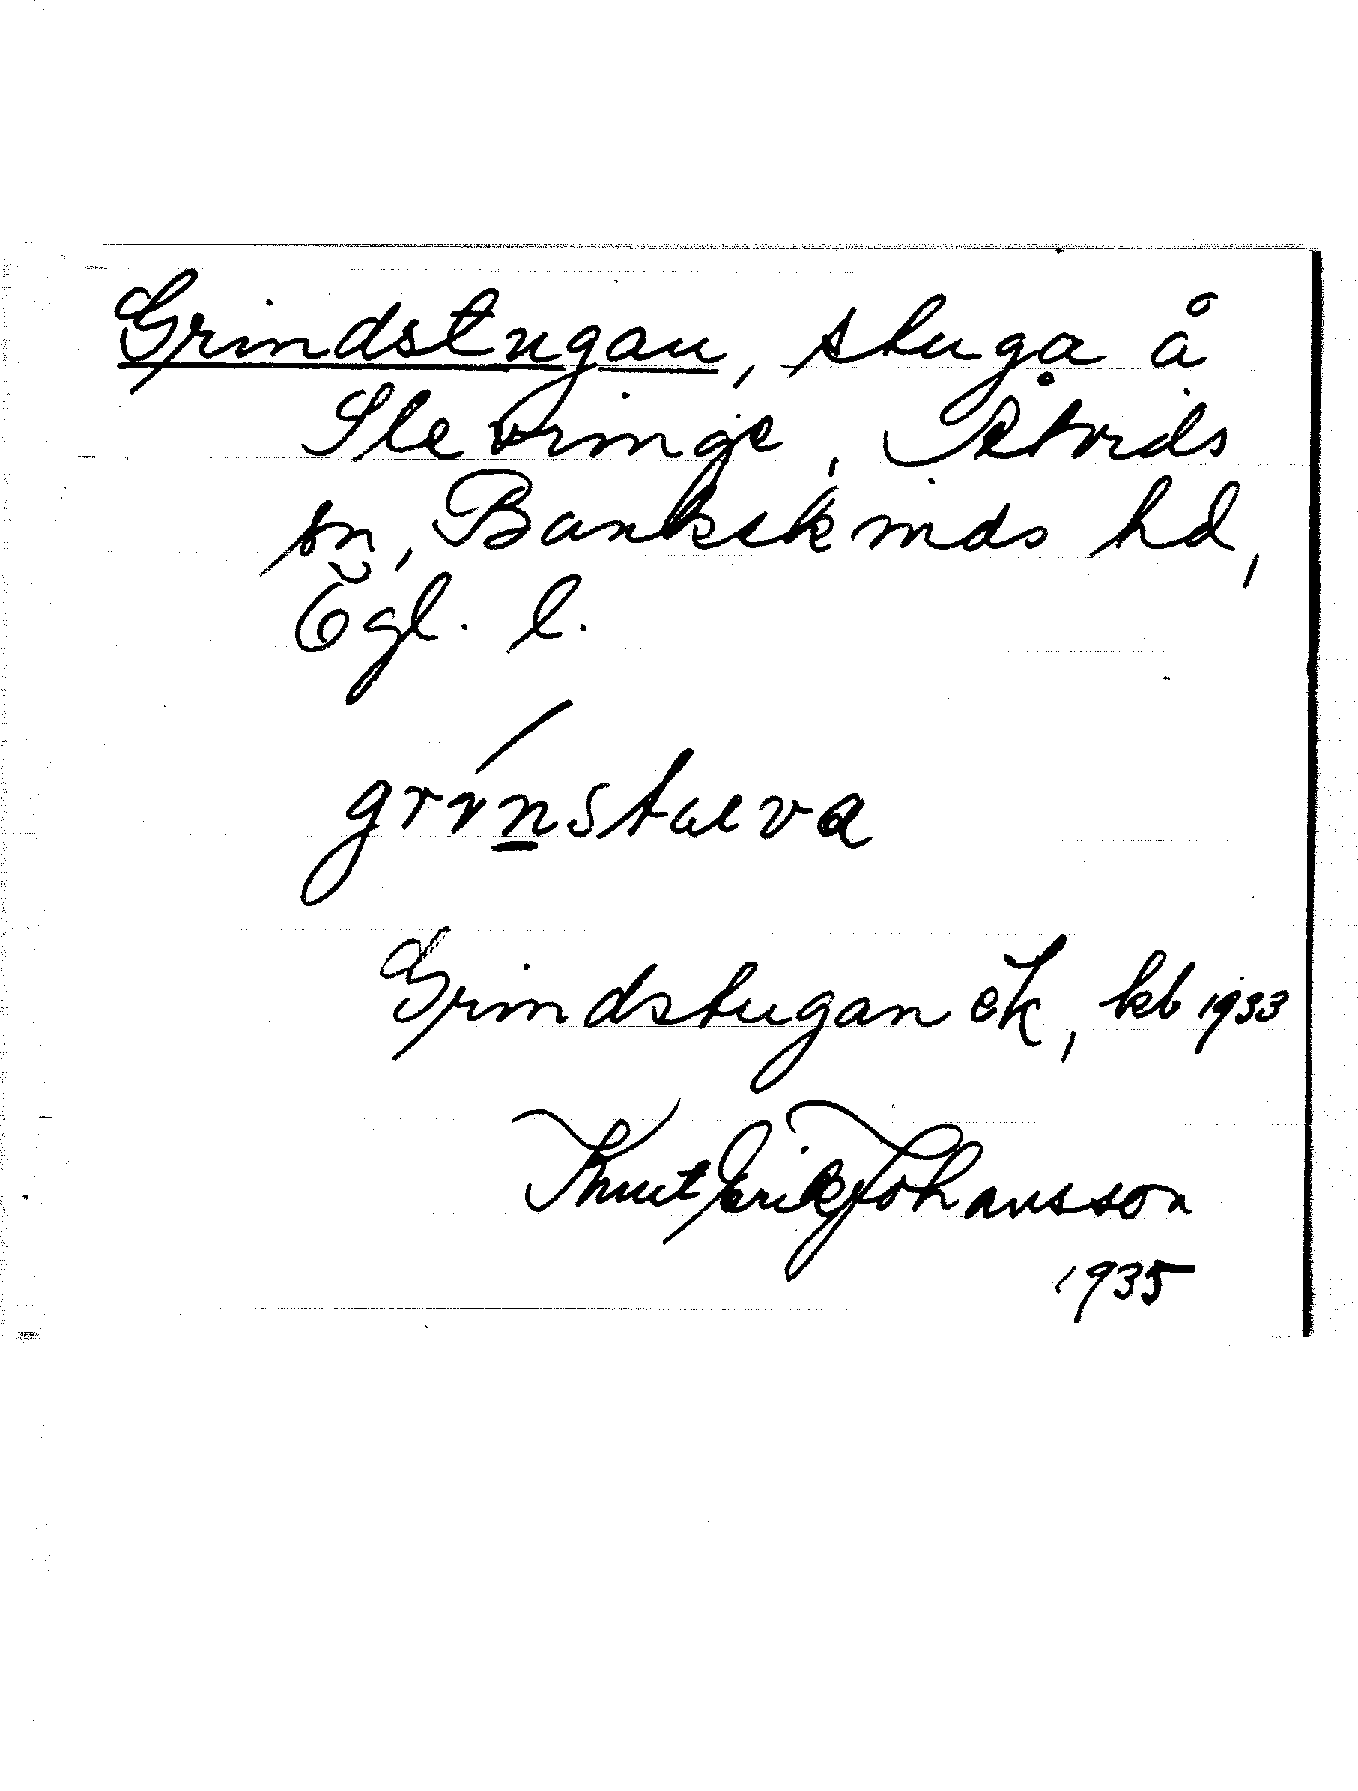 Grindstugan, stuga å
Slevringe, Åtvids
sn, Bankekinds hd,
Ögl. l.
grinstuva
Grindstugan ek, kb 1933
Knut Erik Johansson
1935